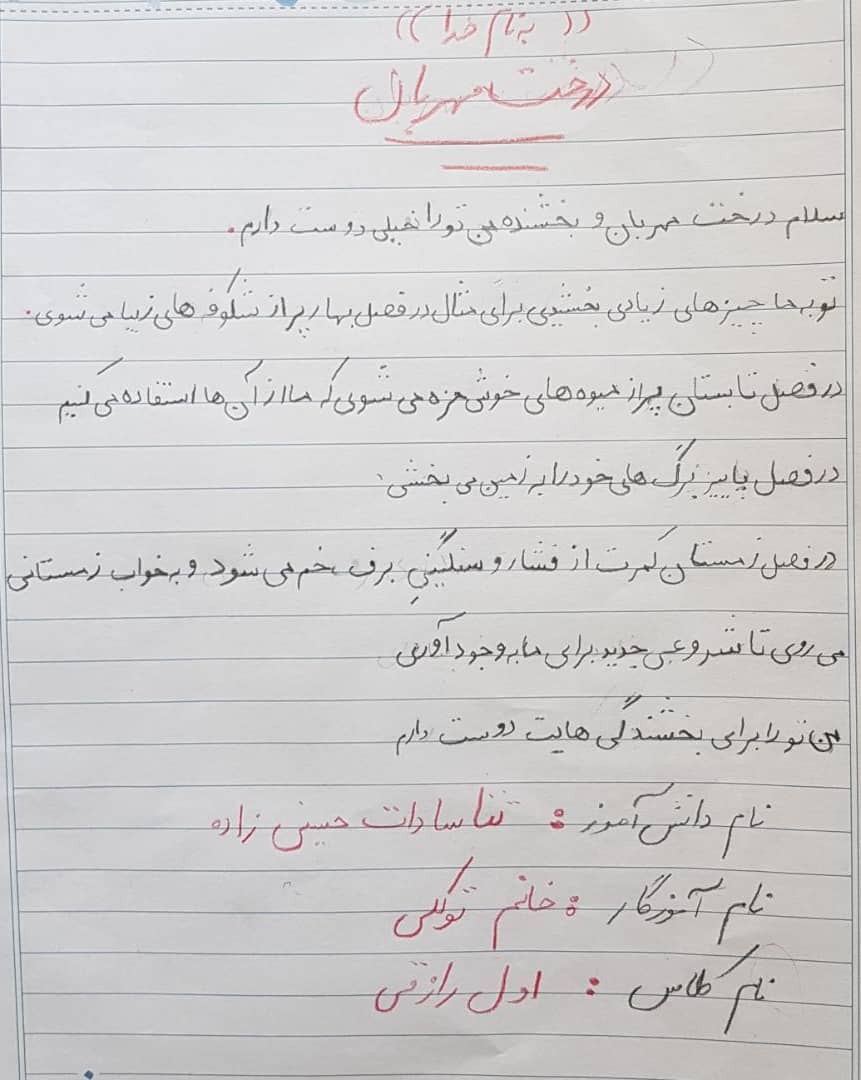 (( به نام خدا ))
درخت مهربان
سلام درخت مهربان و بخشنده من تو را خیلی دوست دارم.
تو به ما چیزهای زیادی بخشیدی برای مثال در فصل بهار پر از شکوفه های زیبا می شوی.
در فصل تابستان پر از میوه های خوش مزه می شوی که ما از آن ها استفاده می کنیم
در فصل پاییز برگ های خود را به زمین می بخشی.
در فصل زمستان کمرت از فشار و سنگینیِ برف خم می شود و به خواب زمستانی
می روی تا شروعی جدید برای ما به وجود آوری
من تو را برای بخشندگی هایت دوست دارم
نام دانش آموز : ثنا سادات حسینی زاده
نام آموزگار : خانم توکلی
نام کلاس : اول رازقی